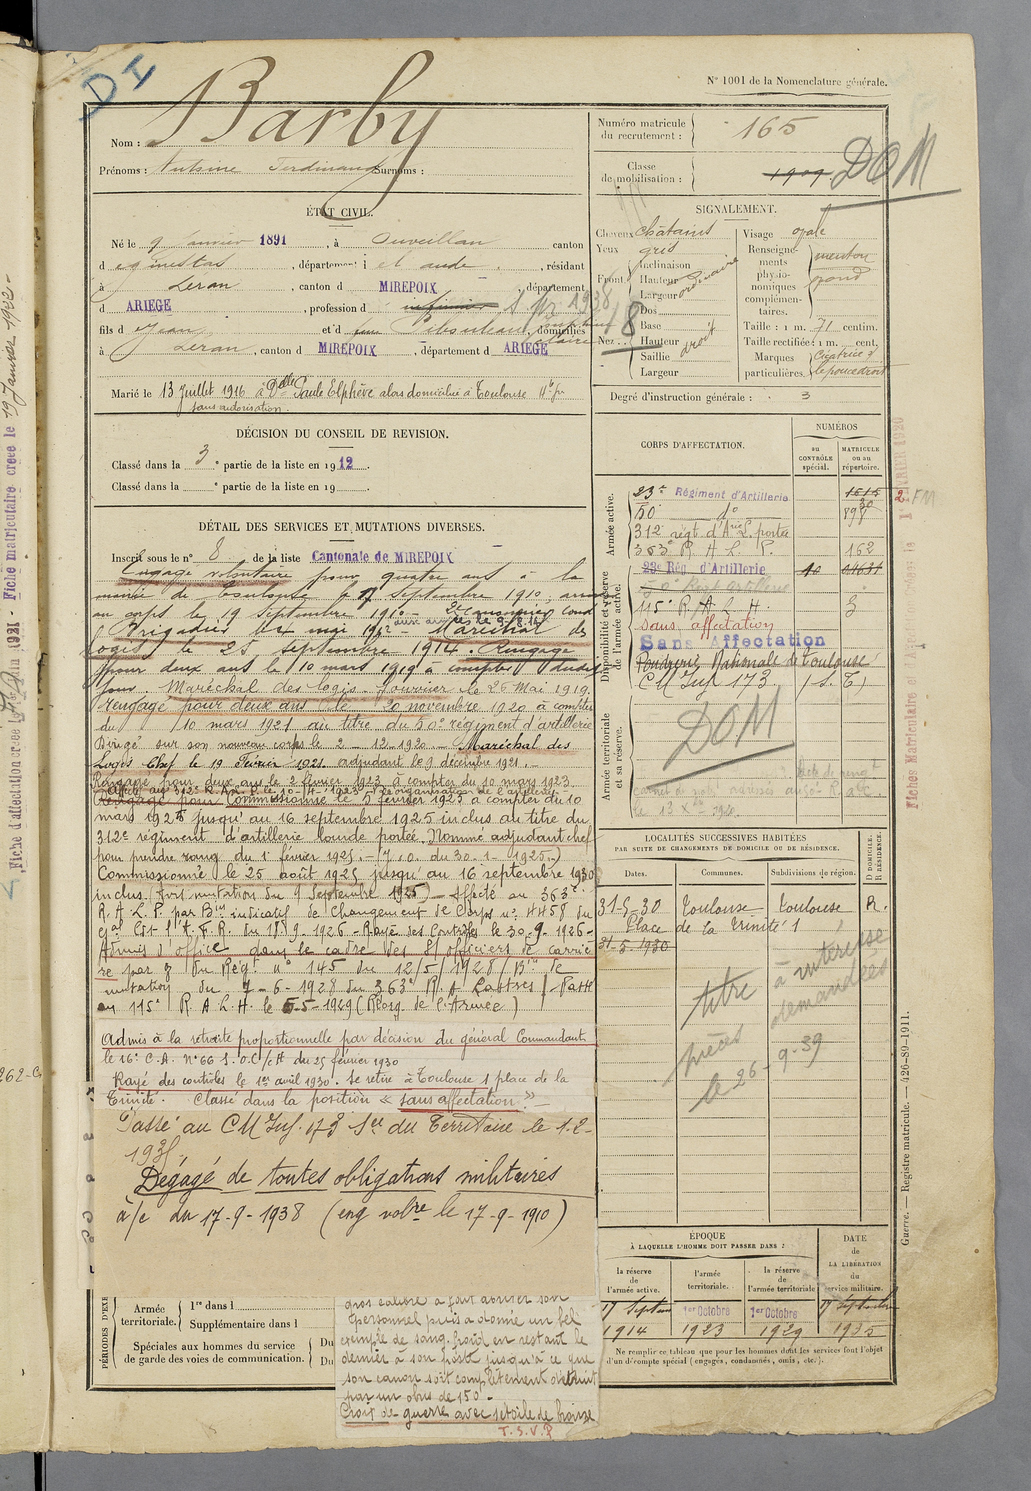 DI
N° 1001 de la Nomenclature générale.
Nom : Barby
Prénoms : Antoine Ferdinand Surnoms :
Numéro matricule du recrutement : 165
Classe de mobilisation : 1909
DOM
ÉTAT CIVIL.
Né le 9 Janvier 1891, à Ouveillan canton
d eginestas, département d el aude, résidant
à Leran, canton d MIREPOIX, département
d ARIEGE, profession d
fils d Jean et d domiciliés
à Leran, canton d MIREPOIX, département d ARIEGE
Marié le 13 Juillet 1916 à Delle Paule Elphève alors domiciliée à Toulouse
sans autorisation.
SIGNALEMENT.
Cheveux châtains
Yeux gris
Front Inclinaison
Hauteur ordinaire
Largeur
Nez : Dos
Base
Hauteur droit
Saillie
Largeur
8
Visage ovale
Renseignements physionomiques complémentaires. menton rond
Taille : 1 m. 71 centim.
Taille rectifiée : 1 m. cent.
Marques particulières. Cicatrice d le pouce droit
Degré d'instruction générale : 3
DÉCISION DU CONSEIL DE REVISION.
Classé dans la 3e partie de la liste en 1912.
Classé dans la e partie de la liste en 19
DÉTAIL DES SERVICES ET MUTATIONS DIVERSES.
Inscrit sous le n° 8 de la liste Cantonale de MIREPOIX
Engagé volontaire pour quatre ans à la
mairie de Toulouse le 17 Septembre 1910,
au corps le 19 Septembre 1910 - 2e canonnier cond
aux armées le 9.8.14
Brigadier le mai 1912 - Maréchal des
logis le 25 septembre 1914. Rengagé
pour deux ans le 10 mars 1919 à compter dudit
jour. Maréchal des logis fourrier le 26 Mai 1919.
rengagé pour deux ans le 20 novembre 1920 à compter
du 10 mars 1921 au titre du 50e régiment d'artillerie
Dirigé sur son nouveau corps le 2-12-1920 - Maréchal des
Logis Chef le 19 Février 1921. adjudant le 9 décembre 1921.
Rengagé pour deux ans le 2 février 1923 à compter du 10 mars 1923
Rengagé pour Commissionné le 5 février 1925 à compter du 10
mars 1925 jusqu'au 16 septembre 1925 inclus au titre du
312e régiment d'artillerie lourde portée. Nommé adjudant chef
pour prendre rang du 1er février 1925. - J.O. du 30-1-1925.-)
Commissionné le 25 août 1925 jusqu'au 16 septembre 1930
inclus (Avis mutation du 9 Septembre 1925) - Affecté au 363e
R.A.L.P. par Bin indicatif de Changement de Corps n° 4458 du
Gal Cdt l'A.F.R. du 18-9-1926 - Rayé des Contrôles le 30-9-1926-
Admis d'office dans le cadre des S/officiers de carriè
re par du Régt n° 145 du 12/5/1928 / Bin de
mutation du 7-6-1928 du 363e R.A. Lartres / Passé
au 115e R.A.L.H. le 5-5-1929 (Réorg. de l'Armée)
Admis à la retraite proportionnelle par décision du général Commandant
le 16e C.A. n° 66 S.O.C/cA du 25 février 1930
Rayé des contrôles le 1er avril 1930. Se retire à Toulouse 1 place de la
Trinité. Classé dans la position « sans affectation. » -
Passé au CM Inf. 173 Ser du Territoire le 1-2-
193
Dégagé de toutes obligations militaires
à/c du 17-9-1938 (eng volre le 17-9-1910)
CORPS D'AFFECTATION.
NUMÉROS
au CONTRÔLE spécial.
MATRICULE ou au répertoire.
Armée active.
23e Régiment d'Artillerie 1615
50 do 898
312 régt d'Arie L. portée
363e R A L P. 162
Disponibilité et réserve de l'armée active.
23e Rég. d'Artillerie 40
50e Régt Artillerie
115e R.A.L.H. 3
sans affectation
Sans Affectation
Poudrerie Nationale de Toulouse
CM Inf 173 (S.T)
Armée territoriale et sa réserve.
DOM
le 13 Xbre 1920.
LOCALITÉS SUCCESSIVES HABITÉES
PAR SUITE DE CHANGEMENTS DE DOMICILE OU DE RÉSIDENCE.
Dates. Communes. Subdivisions de région. D DOMICILE. R RÉSIDENCE.
31-5-30 Toulouse Toulouse R.
Place de la Trinité 1
31-5-1930
titre à interesse
pièces demandées
le 26-9-39
ÉPOQUE
À LAQUELLE L'HOMME DOIT PASSER DANS :
la réserve de l'armée active. l'armée territoriale. la réserve de l'armée territoriale
DATE de LA LIBÉRATION du service militaire.
17 Septem 1er Octobre 1er Octobre 17 Septembre
1914 1923 1929 1935
Ne remplir ce tableau que pour les hommes dont les services font l'objet
d'un décompte spécial (engagés, condamnés, omis, etc.).
PÉRIODES D'EXE
Armée territoriale. 1re dans l
Supplémentaire dans l
Spéciales aux hommes du service de garde des voies de communication. Du
Du
gros calibre a fait abriter son
personnel puis a donné un bel
exemple de sang froid en restant le
dernier à son poste jusqu'à ce que
son canon soit complètement détruit
par un obus de 150 -
Croix de guerre avec étoile de bronze
T.S.V.P
Guerre. — Registre matricule. — 426-89-1911.
Fiche matriculaire créée le 19 Janvier 1922